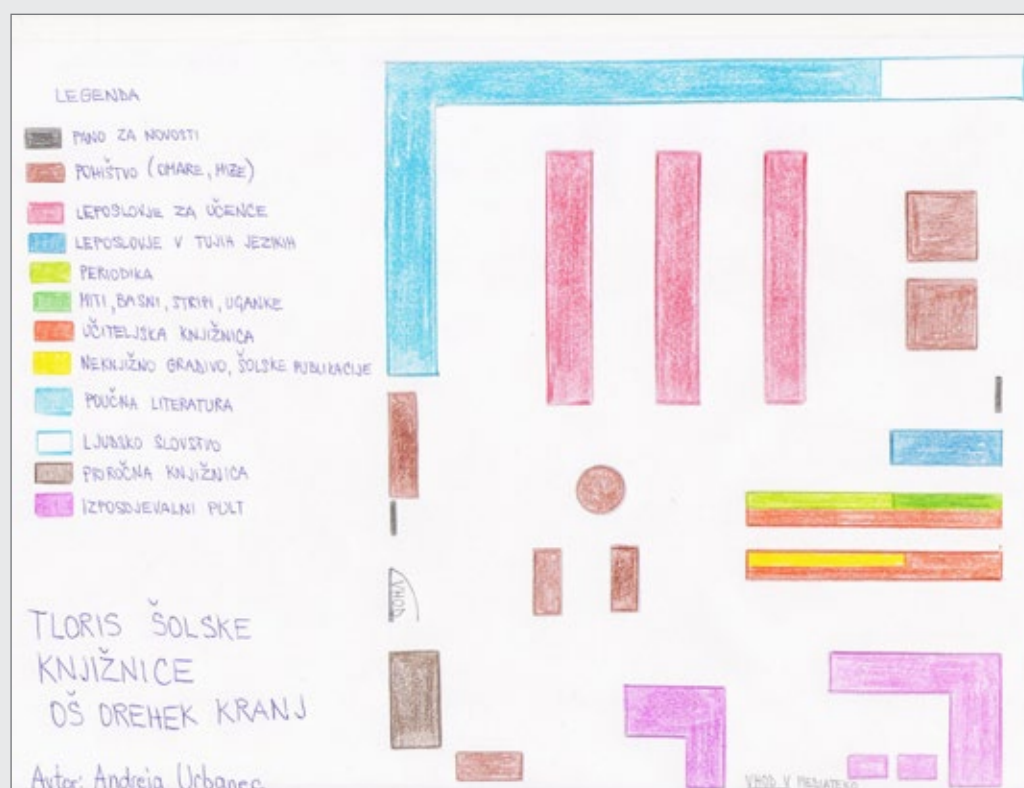 LEGENDA
PANO ZA NOVOSTI
POHIŠTVO (OMARE, MIZE)
LEPOSLOVJE ZA UČENCE
LEPOSLOVJE V TUJIH JEZIKIH
PERIODIKA
MITI, BASNI, STRIPI, UGANKE
UČITELJSKA KNJIŽNICA
NEKNJIŽNO GRADIVO, ŠOLSKE PUBLIKACIJE
POUČNA LITERATURA
LJUDSKO SLOVSTVO
PRIROČNA KNJIŽNICA
IZPOSOJEVALNI PULT
VHOD
TLORIS ŠOLSKE
KNJIŽNICE
OŠ OREHEK KRANJ
Avtor: Andreja Urbanec
VHOD V MEDIATEKO